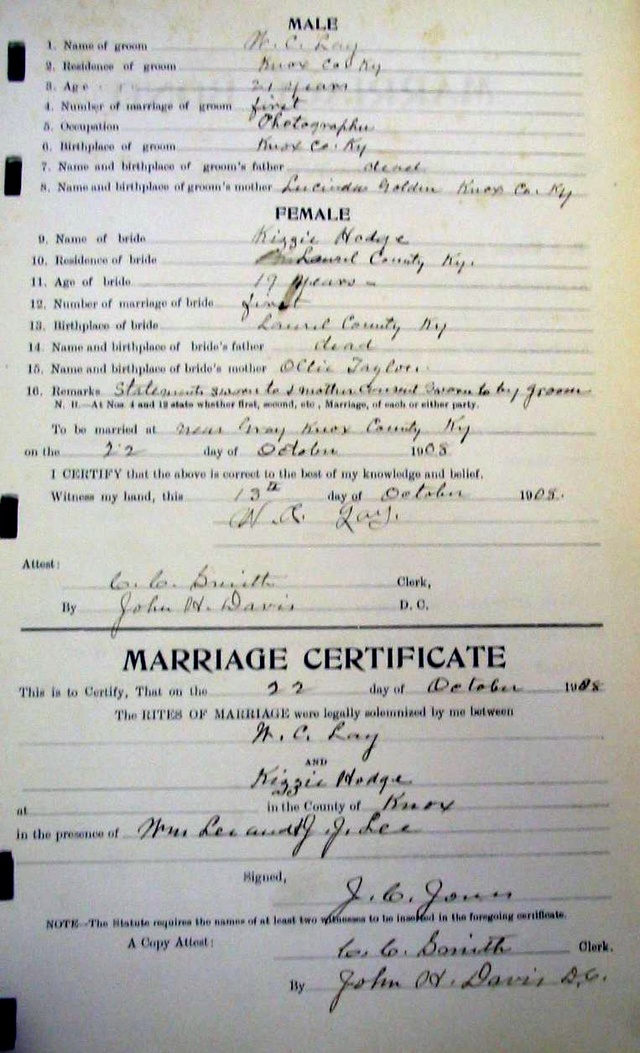 MALE
1. Name of groom W. C. Lay
2. Residence of groom Knox Co. Ky
3. Age 21 years
4. Number of marriage of groom first
5. Occupation Photographer
6. Birthplace of groom Knox Co. Ky
7. Name and birthplace of groom's father dead
8. Name and birthplace of groom's mother Lucinda Golden Knox Co. Ky
FEMALE
9. Name of bride Kizzie Hodge
10. Residence of bride Laurel County Ky.
11. Age of bride 19 years
12. Number of marriage of bride first
13. Birthplace of bride Laurel County Ky
14. Name and birthplace of bride's father dead
15. Name and birthplace of bride's mother Ollie Taylor.
16. Remarks Statements sworn to & mother consent sworn to by groom
N. B.—At Nos. 4 and 12 state whether first, second, etc., Marriage, of each or either party.
To be married at near Gray Knox County Ky
on the 22 day of October 1908
I CERTIFY that the above is correct to the best of my knowledge and belief.
Witness my hand, this 13th day of October 1908.
W. C. Lay.
Attest:
C. C. Smith Clerk,
By John H. Davis D. C.
MARRIAGE CERTIFICATE
This is to Certify, That on the 22 day of October 1908
The RITES OF MARRIAGE were legally solemnized by me between
W. C. Lay
AND
Kizzie Hodge
at in the County of Knox
in the presence of Wm Lee and J. J. Lee
Signed,
J. C. Jones
NOTE—The Statute requires the names of at least two witnesses to be inserted in the foregoing certificate.
A Copy Attest: C. C. Smith Clerk.
By John H. Davis D.C.